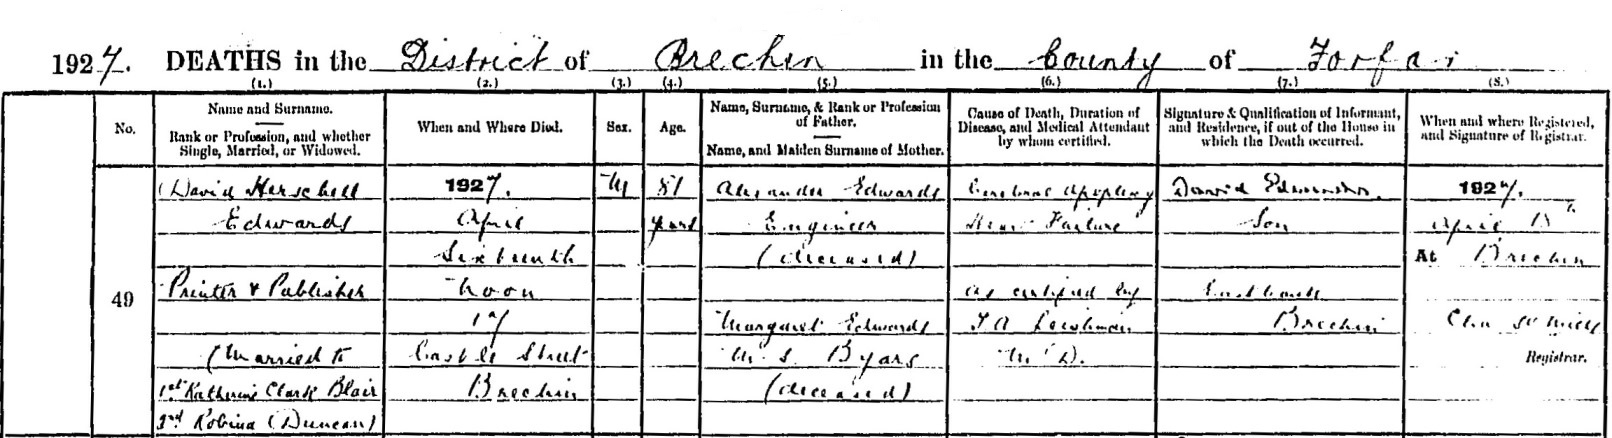 1927. DEATHS in the District of Brechin in the County of Forfar
(1.) (2.) (3.) (4.) (5.) (6.) (7.) (8.)
No.
Name and Surname.
Rank or Profession, and whether
Single, Married, or Widowed.
When and Where Died.
Sex.
Age.
Name, Surname, & Rank or Profession
of Father.
Name, and Maiden Surname of Mother.
Cause of Death, Duration of
Disease, and Medical Attendant
by whom certified.
Signature & Qualification of Informant,
and Residence, if out of the House in
which the Death occurred.
When and where Registered,
and Signature of Registrar.
49
David Herschell
Edwards
Printer & Publisher
(Married to
1st Katherine Clark Blair
2nd Robina (Duncan)
1927.
April
Sixteenth
Noon
Castle Street
Brechin
M
81
years
Alexander Edwards
Engineer
(deceased)
Margaret Edwards
M.S. Byars
(deceased)
Cerebral Apoplexy
Heart Failure
as certified by
M.D.
David Edwards.
Son
Eastbank
Brechin
1927.
April
At Brechin
Registrar.